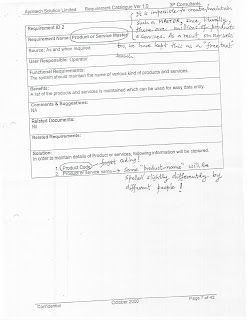 Apnitech Solution Limited Requirement Catalogue Ver 1.0 XP Consultants
It is impossible to create/maintain
such a MASTER, since, literally,
there are millions of products
& services. As a result on our web
too, we have kept this as a "free text"
search
Requirement ID 2
Requirement Name: Product or Service Master
Source: As and when required
User Responsible: Operator
Functional Requirements:
The system should maintain the name of various kind of products and services.
Benefits:
A list of the products and services is maintained which can be used for easy data entry.
Comments & Suggestions:
Nil
Related Documents:
Nil
Related Requirements:
Solution:
In order to maintain details of Product or services, following information will be captured.
1. Product Code forget coding!
2. Product or Service name → Same "product-name" will be
spelled slightly differently by
different people!
Confidential October 2000 Page 7 of 42